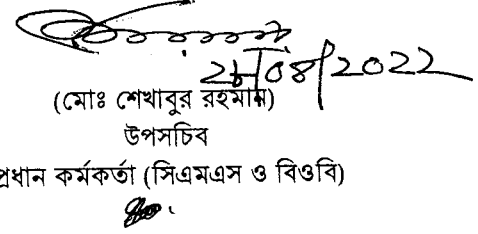 28/08/2022
(মোঃ শেখাবুর রহমান)
উপসচিব
প্রধান কর্মকর্তা (সিএমএস ও বিওবি)